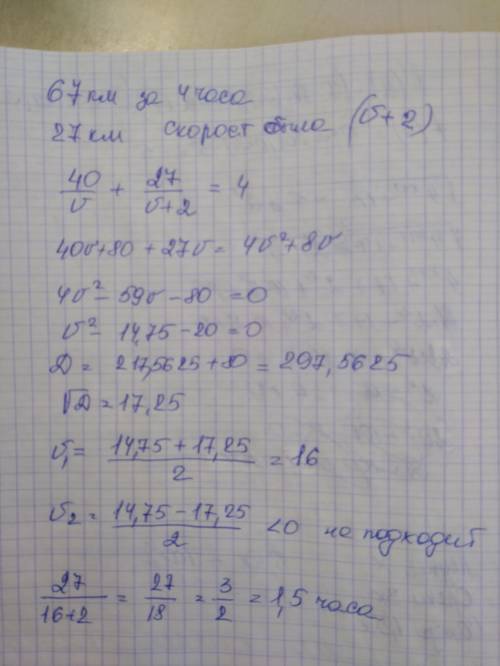 67 км за 4 часа
27 км скорост была (v+2)
40/v + 27/(v+2) = 4
40v+80 + 27v = 4v²+8v
4v² - 59v - 80 = 0
v² - 14,75 - 20 = 0
D = 217,5625 + 80 = 297,5625
√D = 17,25
v₁ = (14,75 + 17,25)/2 = 16
v₂ = (14,75 - 17,25)/2 < 0 не подходит
27/(16+2) = 27/18 = 3/2 = 1,5 часа